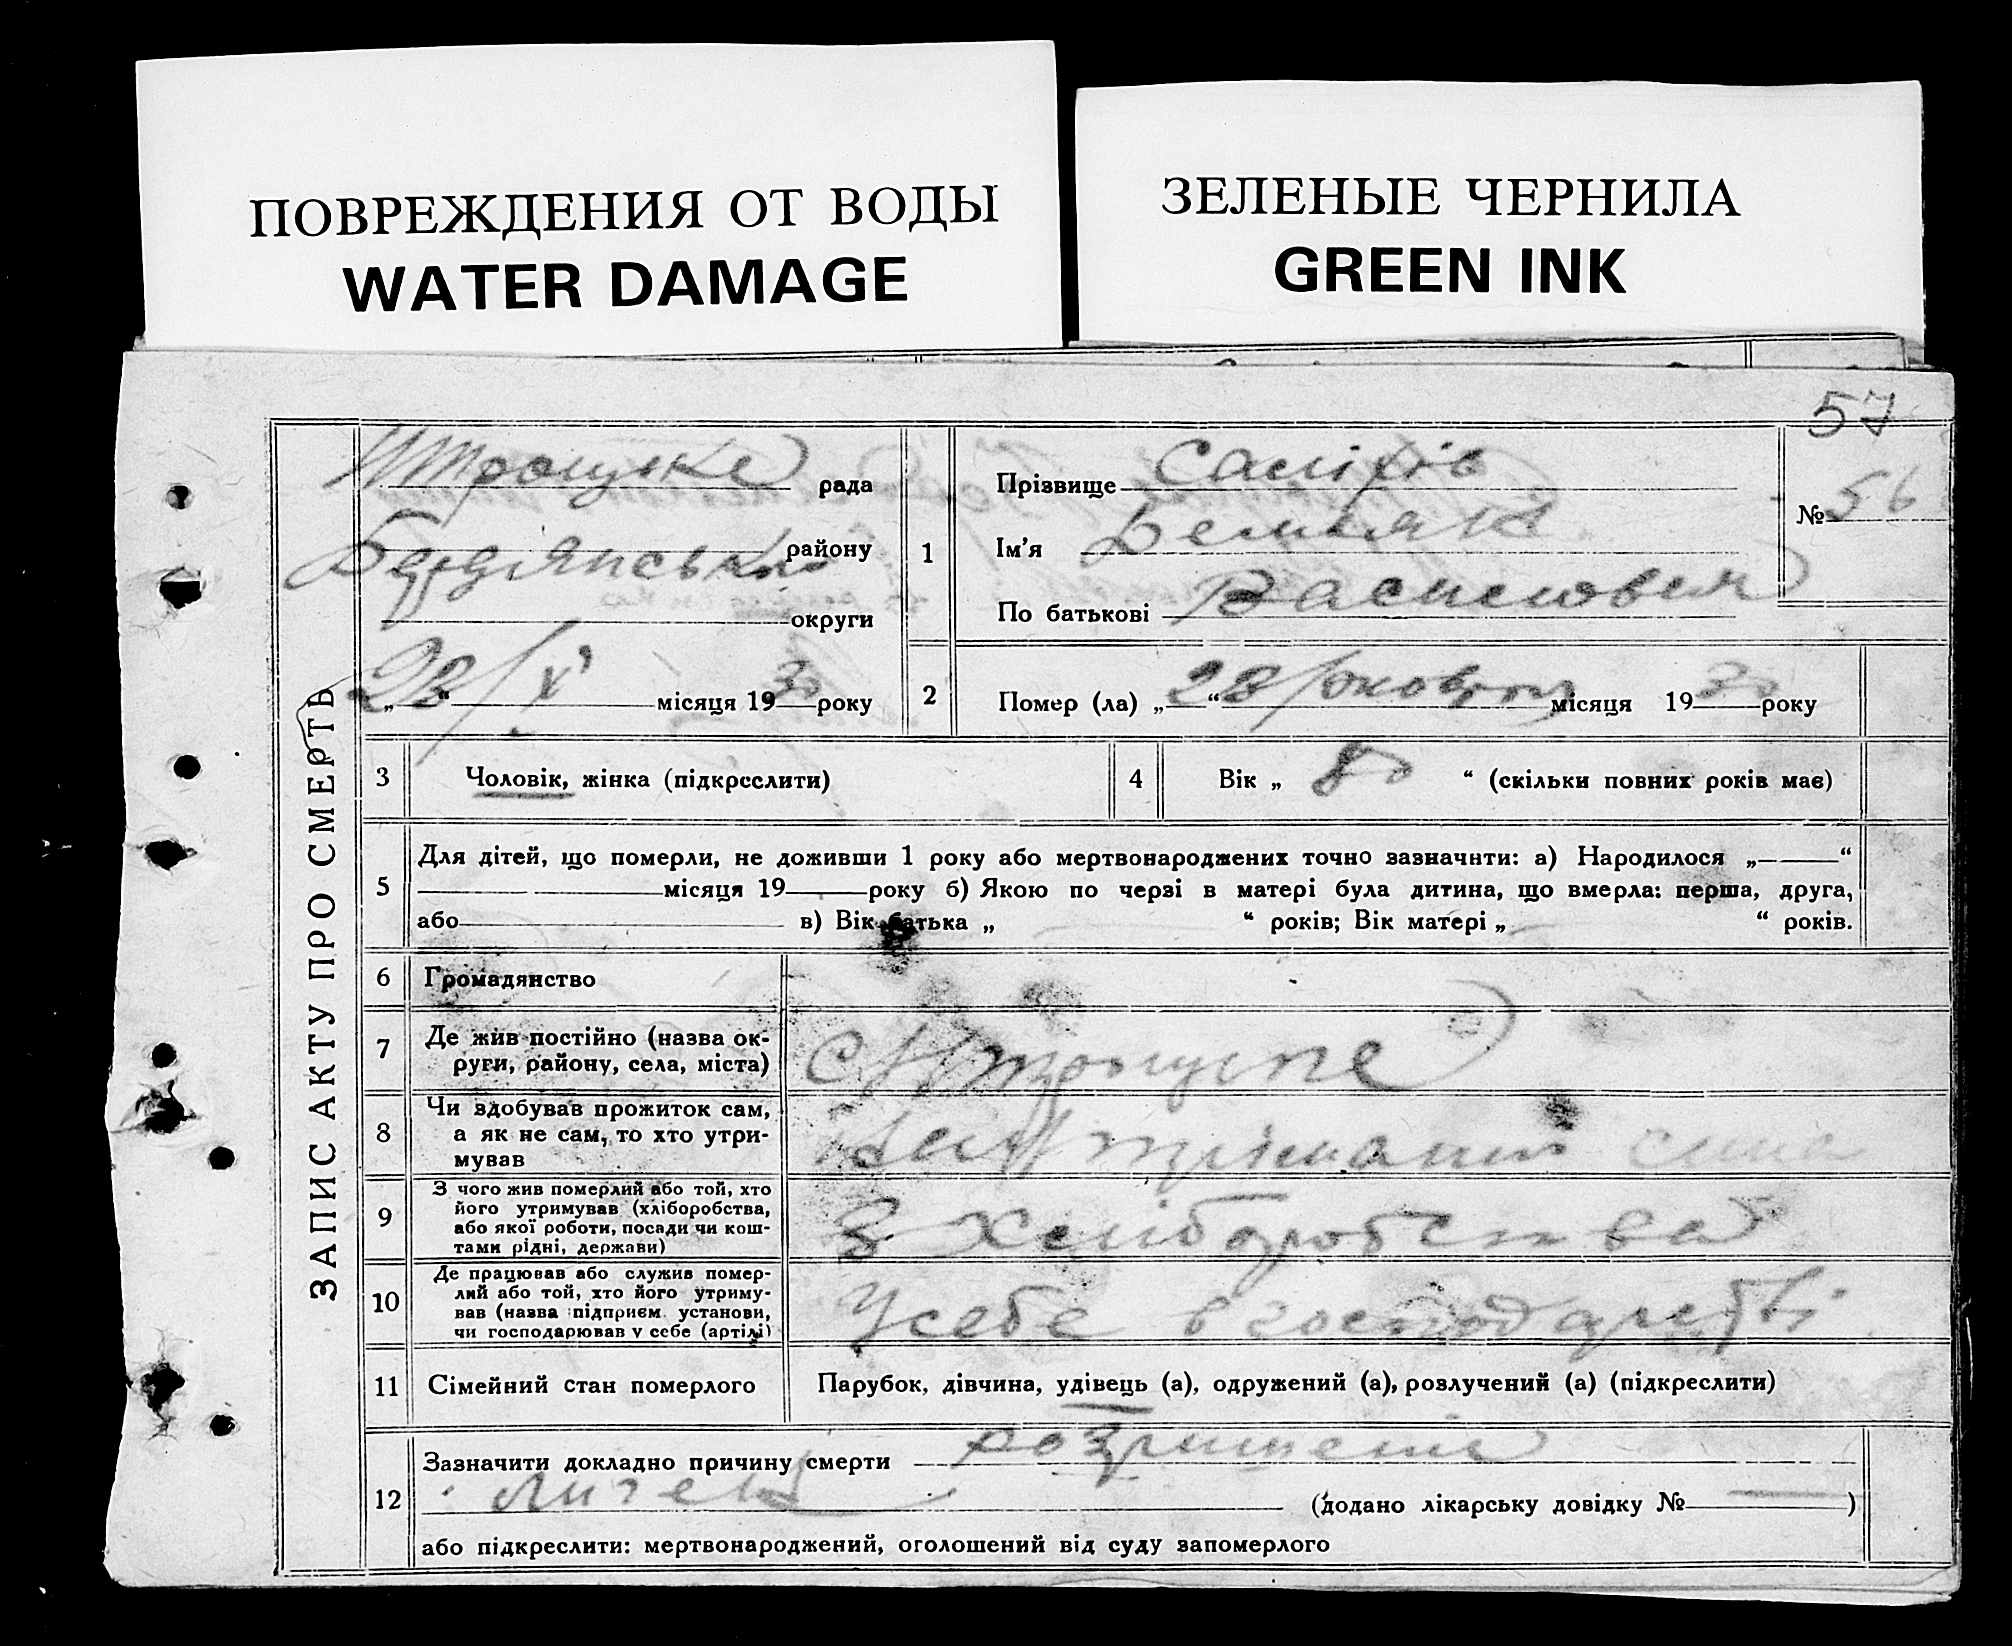 ПОВРЕЖДЕНИЯ ОТ ВОДЫ
WATER DAMAGE
ЗЕЛЕНЫЕ ЧЕРНИЛА
GREEN INK
57
ЗАПИС АКТУ ПРО СМЕРТЬ
рада
району
округи
„23“ /X місяця 1930 року
1
Прізвище
Ім'я
По батькові
№ 56
2 Помер (ла) „23“ жовтня місяця 1930 року
3 Чоловік, жінка (підкреслити)
4 Вік „ 80 “ (скільки повних років має)
5 Для дітей, що померли, не доживши 1 року або мертвонароджених точно зазначити: а) Народилося „ “
місяця 19 року б) Якою по черзі в матері була дитина, що вмерла: перша, друга,
або в) Вік батька „ “ років; Вік матері „ “ років.
6 Громадянство
7 Де жив постійно (назва ок-
руги, району, села, міста)
с
8 Чи здобував прожиток сам,
а як не сам, то хто утри-
мував
сина
9 З чого жив померлий або той, хто
його утримував (хліборобства,
або якої роботи, посади чи кош-
тами рідні, держави)
З хліборобства
10 Де працював або служив помер-
лий або той, хто його утриму-
вав (назва підприєм. установи,
чи господарював у себе (артілі)
У себе в господарстві
11 Сімейний стан померлого
Парубок, дівчина, удівець (а), одружений (а), розлучений (а) (підкреслити)
12 Зазначити докладно причину смерти
(додано лікарську довідку № )
або підкреслити: мертвонароджений, оголошений від суду запомерлого